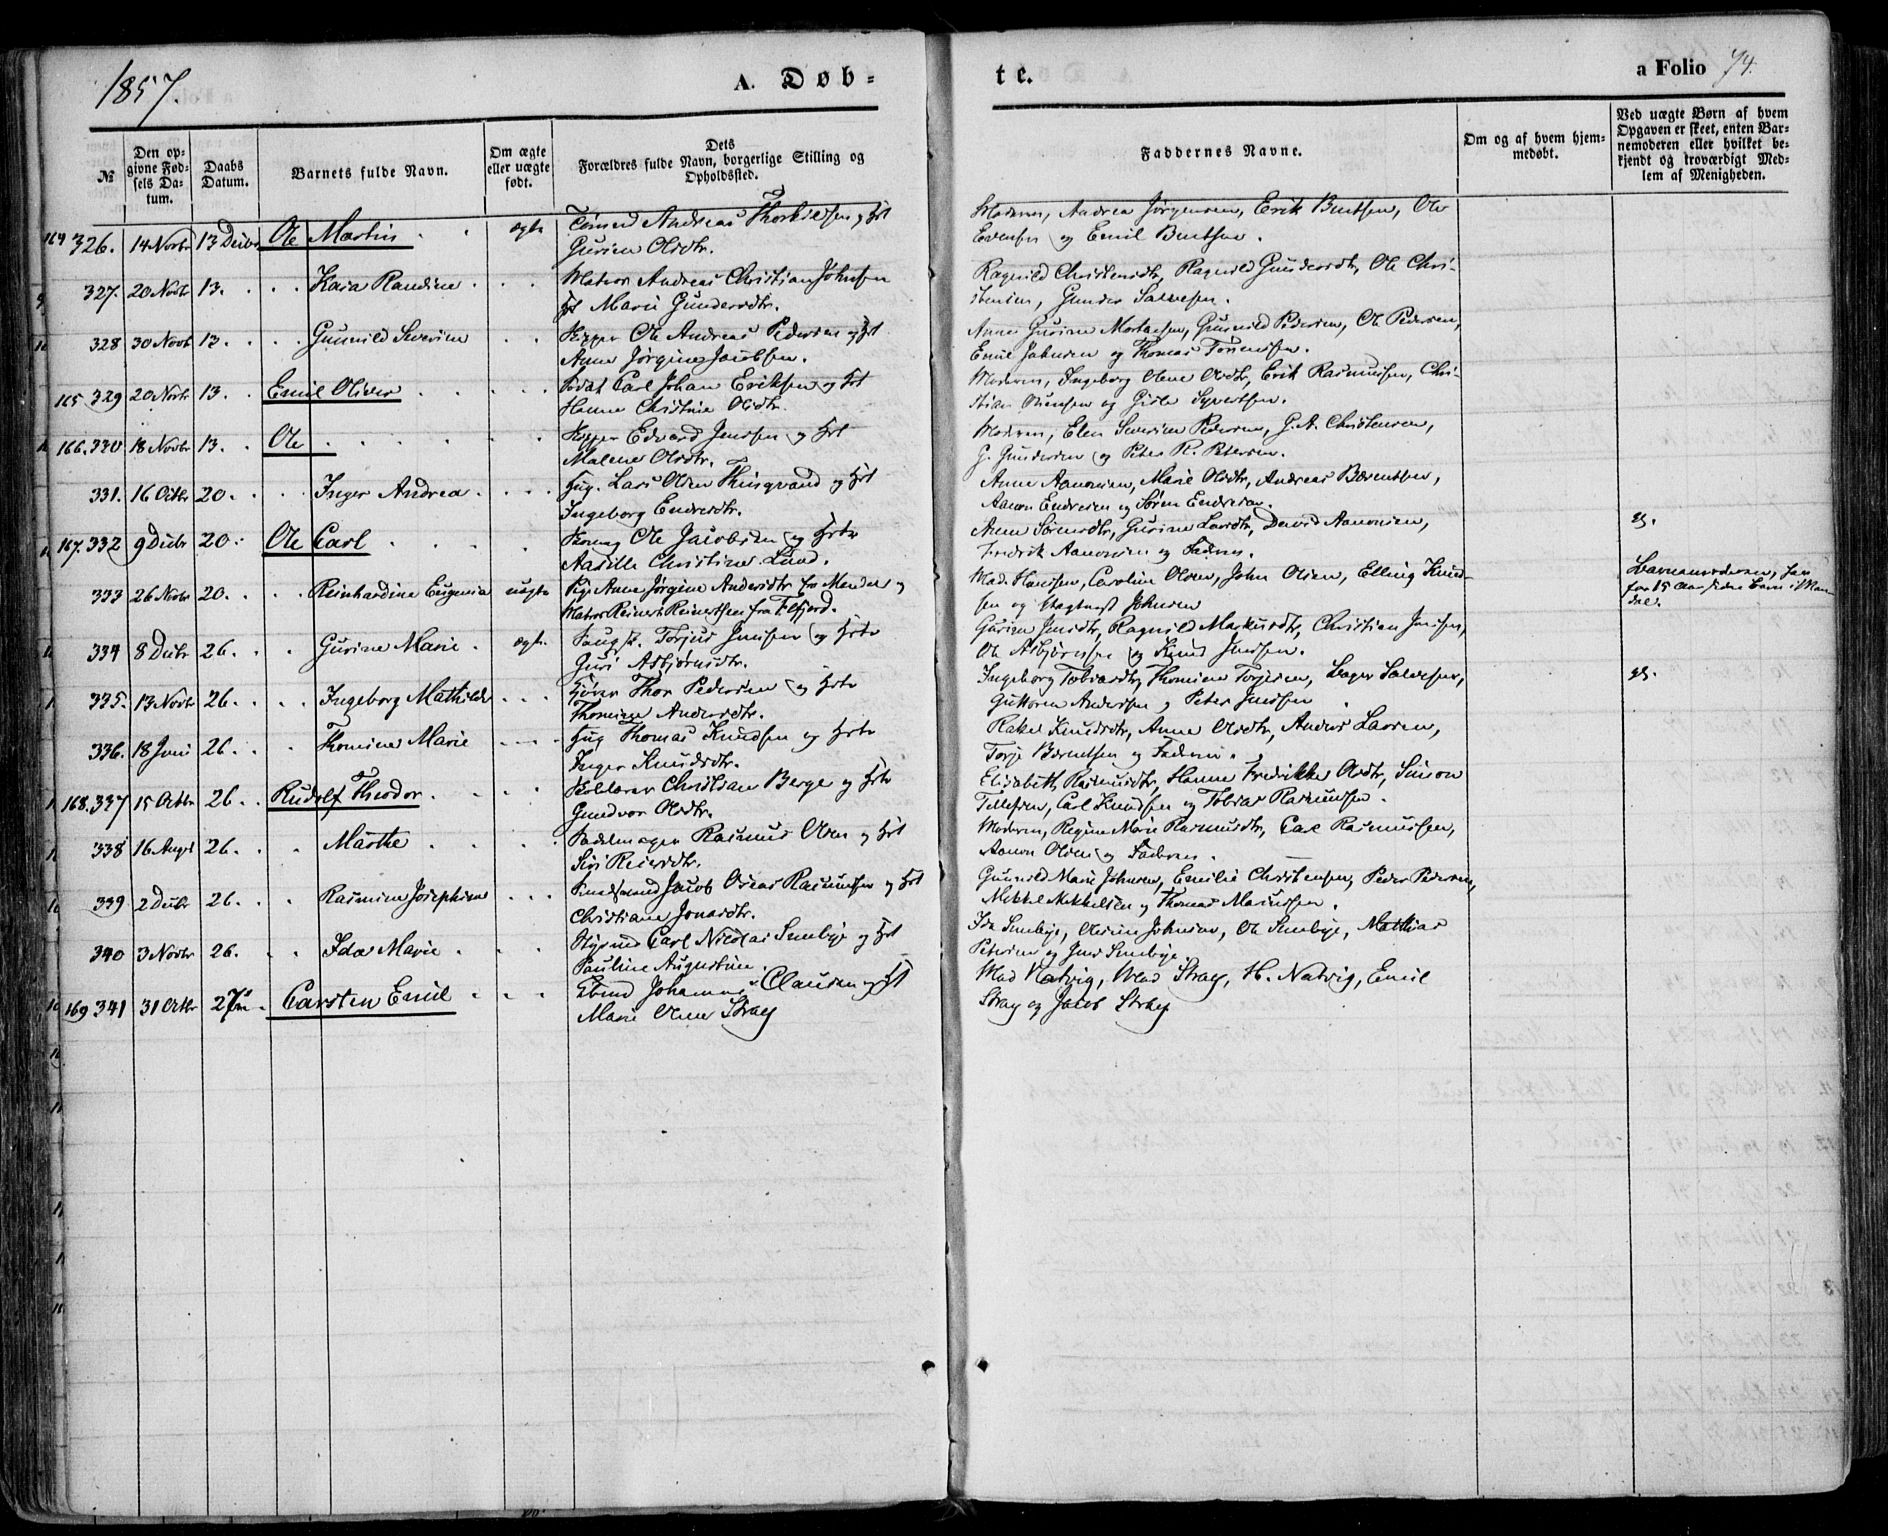 1857.
A. Døb-
te.
a Folio 74.
№
Den op-
givne Fød-
sels Da-
tum.
Daabs
Datum.
Barnets fulde Navn.
Om ægte
eller uægte
født.
Dets
Forældres fulde Navn, borgerlige Stilling og
Opholdssted.
Faddernes Navne.
Om og af hvem hjem-
medøbt.
Ved uægte Børn af hvem
Opgaven er skeet, enten Bar-
nemoderen eller hvilket be-
kjendt og troværdigt Med-
lem af Menigheden.
164 326. 14 Novbr 13 Decbr Ole Martin ægte Tømmd Andreas Thorkildsen og Hst
Gurine Olsdtr.
Moderen, Andrea Jørgensen, Erik Berntsen, Ole
Evensen og Emil Berntsen.
327. 20 Novbr 13. Kaia Randine Matros Andreas Christian Johnsen
Hst Marie Gundersdtr.
Ragnild Christensdtr, Ragnild Gundersdtr, Ole Chri-
stensen, Gunder Salvesen.
328 30 Novb 13. Gunnild Severine Skipper Ole Andreas Pedersen og Hst
Anne Jørgine Jacobsen.
Anne Gurine Mortensen, Gunnild Pedersen, Ole Pedersen,
Emil Johnsen og Thomas Tønnesen.
165 329 20 Novbr 13. Emil Oliver Soldat Carl Johan Eriksen og Hst
Hanne Christine Olsdtr.
Moderen, Ingeborg Olene Olsdtr, Erik Rasmussen, Chri-
stian Olsensen og Gisle Syvertsen.
166. 330 18 Novbr 13. Ole Skipper Edvard Jensen og Hst
Malene Olsdtr.
Moderen, Elen Severine Pedersen, G. A. Christensen,
G. Gundersen og Peter R. Petersen.
331. 16 Octbr 20. Inger Andrea Hug. Lars Olsen Thingvand og Hst
Ingeborg Endresdtr.
Anne Aanonsen, Marie Olsdtr, Andreas Berntsen,
Aanon Endresen og Søren Endresen.
167. 332 9 Decbr 20. Ole Carl Skomag Ole Jacobsen og Hstr
Aasille Christine Lund.
Anne Sørensdtr, Gurine Larsdtr, David Aanonsen,
Fredrik Aanonsen og Faderen.
333 26 Novbr 20. Reinhardine Eugenia uægte Pige Anne Jørgine Andersdtr fra Mandal og
Matros Reinert Reinertsen fra Flekfjord.
Mad. Hansen, Caroline Olsen, John Olsen, Elling Knud-
sen og Johnsen
Barnemoderen, har
for 15 Aar siden Barn i Man-
dal.
334 8 Decbr 26. Gurine Marie ægte Torjus Jensen og Hstr
Guri Asbjørnsdtr.
Gurine Jensdtr, Ragnild Markusdtr, Christian Jensen,
Ole Asbjørnsen og Knud Jensen.
335. 13 Novbr 26. Ingeborg Mathilde Thor Pedersen og Hstr
Thomine Andersdtr.
Ingeborg Tobiasdtr, Thomine Torjesen, Salvesen,
Guttorm Andersen og Peter Jensen.
336. 18 Juni 26. Thomine Marie Hug Thomas Knudsen og Hstr
Inger Knudsdtr.
Rakel Knudsdtr, Anne Olsdtr, Anders Larsen,
Torje Berntsen og Faderen.
168. 337 15 Octbr 26. Rudolf Theodor Christian Berge og Hstr
Gundvor Olsdtr.
Elisabeth Rasmusdtr, Hanne Fredrikke Olsdtr, Simon
Tellefsen, Carl Knudsen og Tobias Rasmussen.
338 16 Augs 26. Marthe Sadelmager Rasmus Olsen og Hst
Siri Reiersdtr.
Moderen, Regine Marie Rasmusdtr, Carl Rasmussen,
Aanon Olsen og Faderen.
339 2 Decbr 26. Rasmine Josephine Jacob Oscar Rasmussen og Hst
Christiane Jonasdtr.
Gunnild Marie Johnsen, Emilie Christensen, Peder Pedersen,
Mekkel Mekkelsen og Thomas Mariussen.
340 3 Novbr 26. Ida Marie Styrmd Carl Nicolai Semberg og Hst
Pauline Augustine.
Johnsen, Mathias
Petersen og
169 341 31 Octbr 27 Carsten Emil Johannes Clausen og Hst
Marie Olene Stray
Mad Natvig, Mad Stray, H. Natvig, Emil
Stray og Jacob Stray.